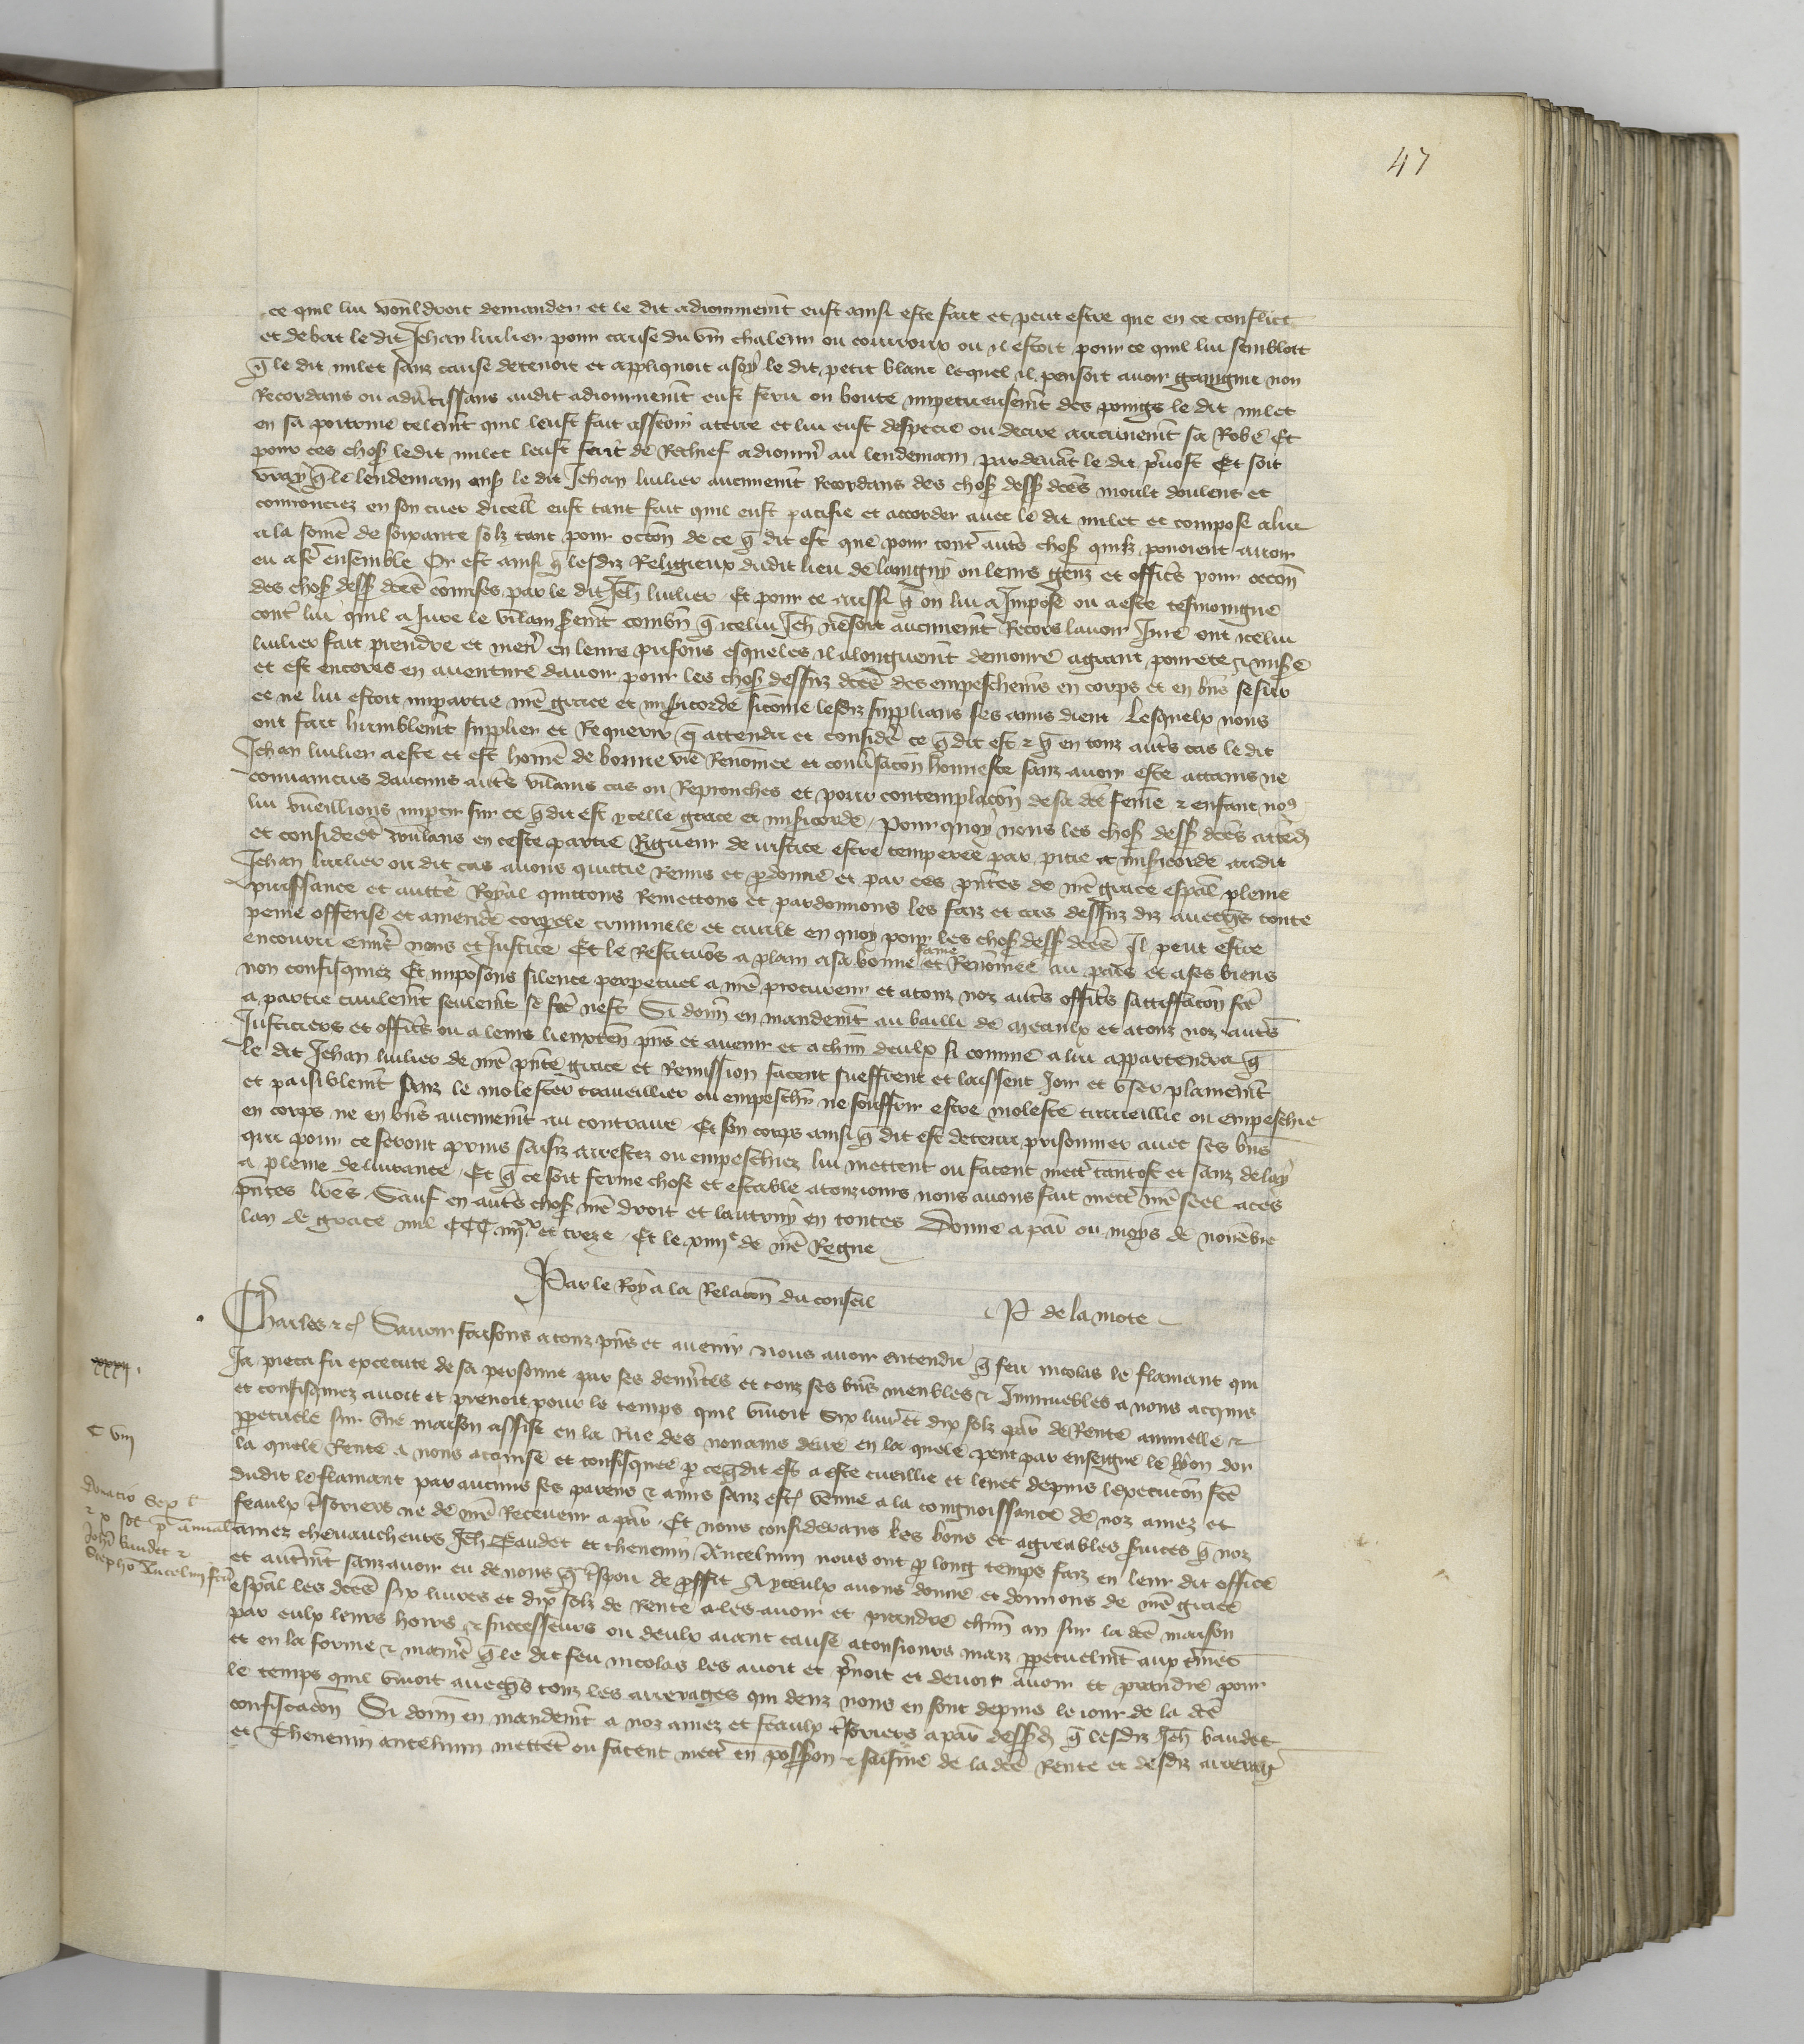 47
ce quil lui vouldroit demander et le dit adiournemēt eust ainsi este fait et peut estre que en ce conflict
et debat le dit Jehan luilier pour cause du vin chaleur ou courroux ou il estoit pour ce quil lui sembloit
q̄ le dit milet sanz cause detenoit et appliquoit a soy le dit petit blanc lequel il pensoit auoir gaingnie non
Recordans ou adu'tissans audit adiournemēt eust feru ou boute impetueusemēt des poings le dit milet
en sa poitrine telemēt quil leust fait asseoir a terre et lui eust despecie ou decire aucunemēt sa Robe Et
pour ces chos' ledit milet leust fait de Rechief adiourn' au lendemain par deuāt le dit p̄uost Et soit
vray q̄ le lendemain le dit Jehan luilier aucunemēt Recordans des chos' dess' dcēs moult doulent et
courrouciez en son cuer dicell' eust tant fait quil eust pacifie et accorder auec le dit milet et compose a lui
a la som̄e de soixante solz tant pour occōn de ce q̄ dit est que pour tout' aut's chos' quilz pouoient auoir
eu a fē ensemble Or est ainsi q̄ lesdiz Religieux dudit lieu de laingny ou leurs genz et offic's pour occōn
des chos' dess' dcēs com̄ises par le dit Jeh̄ luilier Et pour ce aussi q̄ on lui a Impose ou a este tesmoingne
cont' lui quil a Jure le vilain s'emēt combn̄ q̄ icelui Jeh̄ ne soit aucunemēt Recors lauoir Jure ont icelui
luilier fait prendre et men' en leurs prisons esqueles il a longuemēt demoure a grant pourete & mis'e
et est encores en auenture dauoir pour les chos' dessuz dcēs des empeschemēs en corps et en bn̄s se sur
ce ne lui estoit impartie n̄re grace et mis'icorde sicom̄e lesdiz supplians ses amis dient Lesquelx nous
ont fait humblemēt supplier et Requerir q̄ attendu et consid'e ce q̄ dit est & q̄ en touz aut's cas le dit
Jehan luilier a este et est hom̄e de bonne vie Renom̄ee et conu'sacōn honneste sanz auoir este attains ne
conuaincus daucuns aut's vilains cas ou Reprouches et pour contemplacōn de sa dcē fem̄e & enfant no9
lui vueillions impartir sur ce q̄ dit est ycelle grace et mis'icorde Pour quoy nous les chos' dess' dcēs attend'
et considerēs voulans en ceste partie Rigueur de iustice estre temperee par pitie et mis'icorde audit
Jehan luilier ou dit cas auons quittie Remis et p̄donne et par ces pn̄tes de n̄re grace esp̄al pleine
puissance et auctē Royal quittons Remettons et pardonnons les faiz et cas dessuz diz auecq̄s toute
peine offense et amende corporele criminele et ciuile en quoy pour les chos' dess' dcēs Il peut estre
encouru enu's nous et Justice Et le Restituōs a plain a sa bonne fame et Renom̄ee au pais et a ses biens
non confisquiez Et imposons silence perpetuel a n̄re procureur et a touz noz aut's offic's sattiffacōn fcē
a partie ciuilemēt seulemēt se fcē nest Si donn̄ en mandemēt au bailli de Meaulx et a touz noz aut's
Justiciers et offic's ou a leurs lieuxten̄ pn̄s et auenir et a chūn deulx si comme a lui appartendra q̄
le dit Jehan luilier de n̄re pn̄te grace et Remission facent sueffrent et laissent Joir et vser plainemēt
et paisiblemēt sanz le molester trauaillier ou empeschier ne souffrir estre moleste trauaillie ou empeschie
en corps ne en bn̄s aucunemēt au contraire Et son corps ainsi q̄ dit est detenu prisonnier auec ses bn̄s
qui pour ce seront prins saisiz arrestez ou empeschiez lui mettent ou facent mett' tantost et sanz delay
a pleine deliurance Et q̄ ce soit ferme chose et estable a touziours nous auons fait mett' n̄re seel a ces
pn̄tes lr̄es Sauf en aut's chos' n̄re droit et lautruy en toutes Donne a par' ou moys de nouēbre
lan de grace mil CCC iiij xx et treze Et le xiiije de n̄re Regne
Par le Roy a la Relacōn du conseil P de la mote
Charles &c' Sauoir faisons a touz pn̄s et auenir nous auoir entendu q̄ feu nicolas le flamant qui
xxxij
Ja pieca fu execute de sa personne par ses demerites et touz ses bn̄s meubles & Inmuebles a nous acquis
et confisquiez auoit et prenoit pour le temps quil viuoit Six liur' et dix solz par' de Rente annuelle &
C viij
p̄petuele sur vne maison assise en la Rue des nonains deire en la quele pent par enseigne le lyon dor
la quele Rente a nous acquise et confisquee p̄ ce q̄ dit est a este cueillie et leuee depuis lexecucōn fcē
dudit le flamant par aucuns ses parens & amis sanz est' venue a la congnoissance de noz amez et
Donacio Sex l'
feaulx t'soriers ne de n̄re Receueur a par' Et nous considerans les bons et agreables s'uices q̄ noz
& x sol' p' annual
amez cheuaucheurs Jeh̄ Baudet et theuenin Ancelnin nous ont p̄ long temps faiz en leur dit office
Joh'i baudet &
et aut'mēt sanz auoir eu de nous q̄ t'spou de p̄ffit A yceulx auons donne et donnons de n̄re grace
Stepho Ancelin fcā
esp̄al les dcēs six liures et dix solz de Rente a les auoir et prandre chūn an sur la dcē maison
par eulx leurs hoirs & successeurs ou deulx aiant cause a tousiours maiz p̄petuelmēt aux t'mes
et en la forme & manie' q̄ le dit feu nicolas les auoit et p̄noit et deuoit auoir et prandre pour
le temps quil viuoit auecq̄s touz les arrerages qui deuz nous en sont depuis le iour de la dcē
confiscacōn Si donn̄ en mandemēt a noz amez et feaulx t'soriers a par' dess'd' q̄ lesdiz Jeh̄ baudet
et Theuenin ancelnin mettēt ou facent mett' en poss'ion & saisine de la dcē Rente et desdiz arrerag'